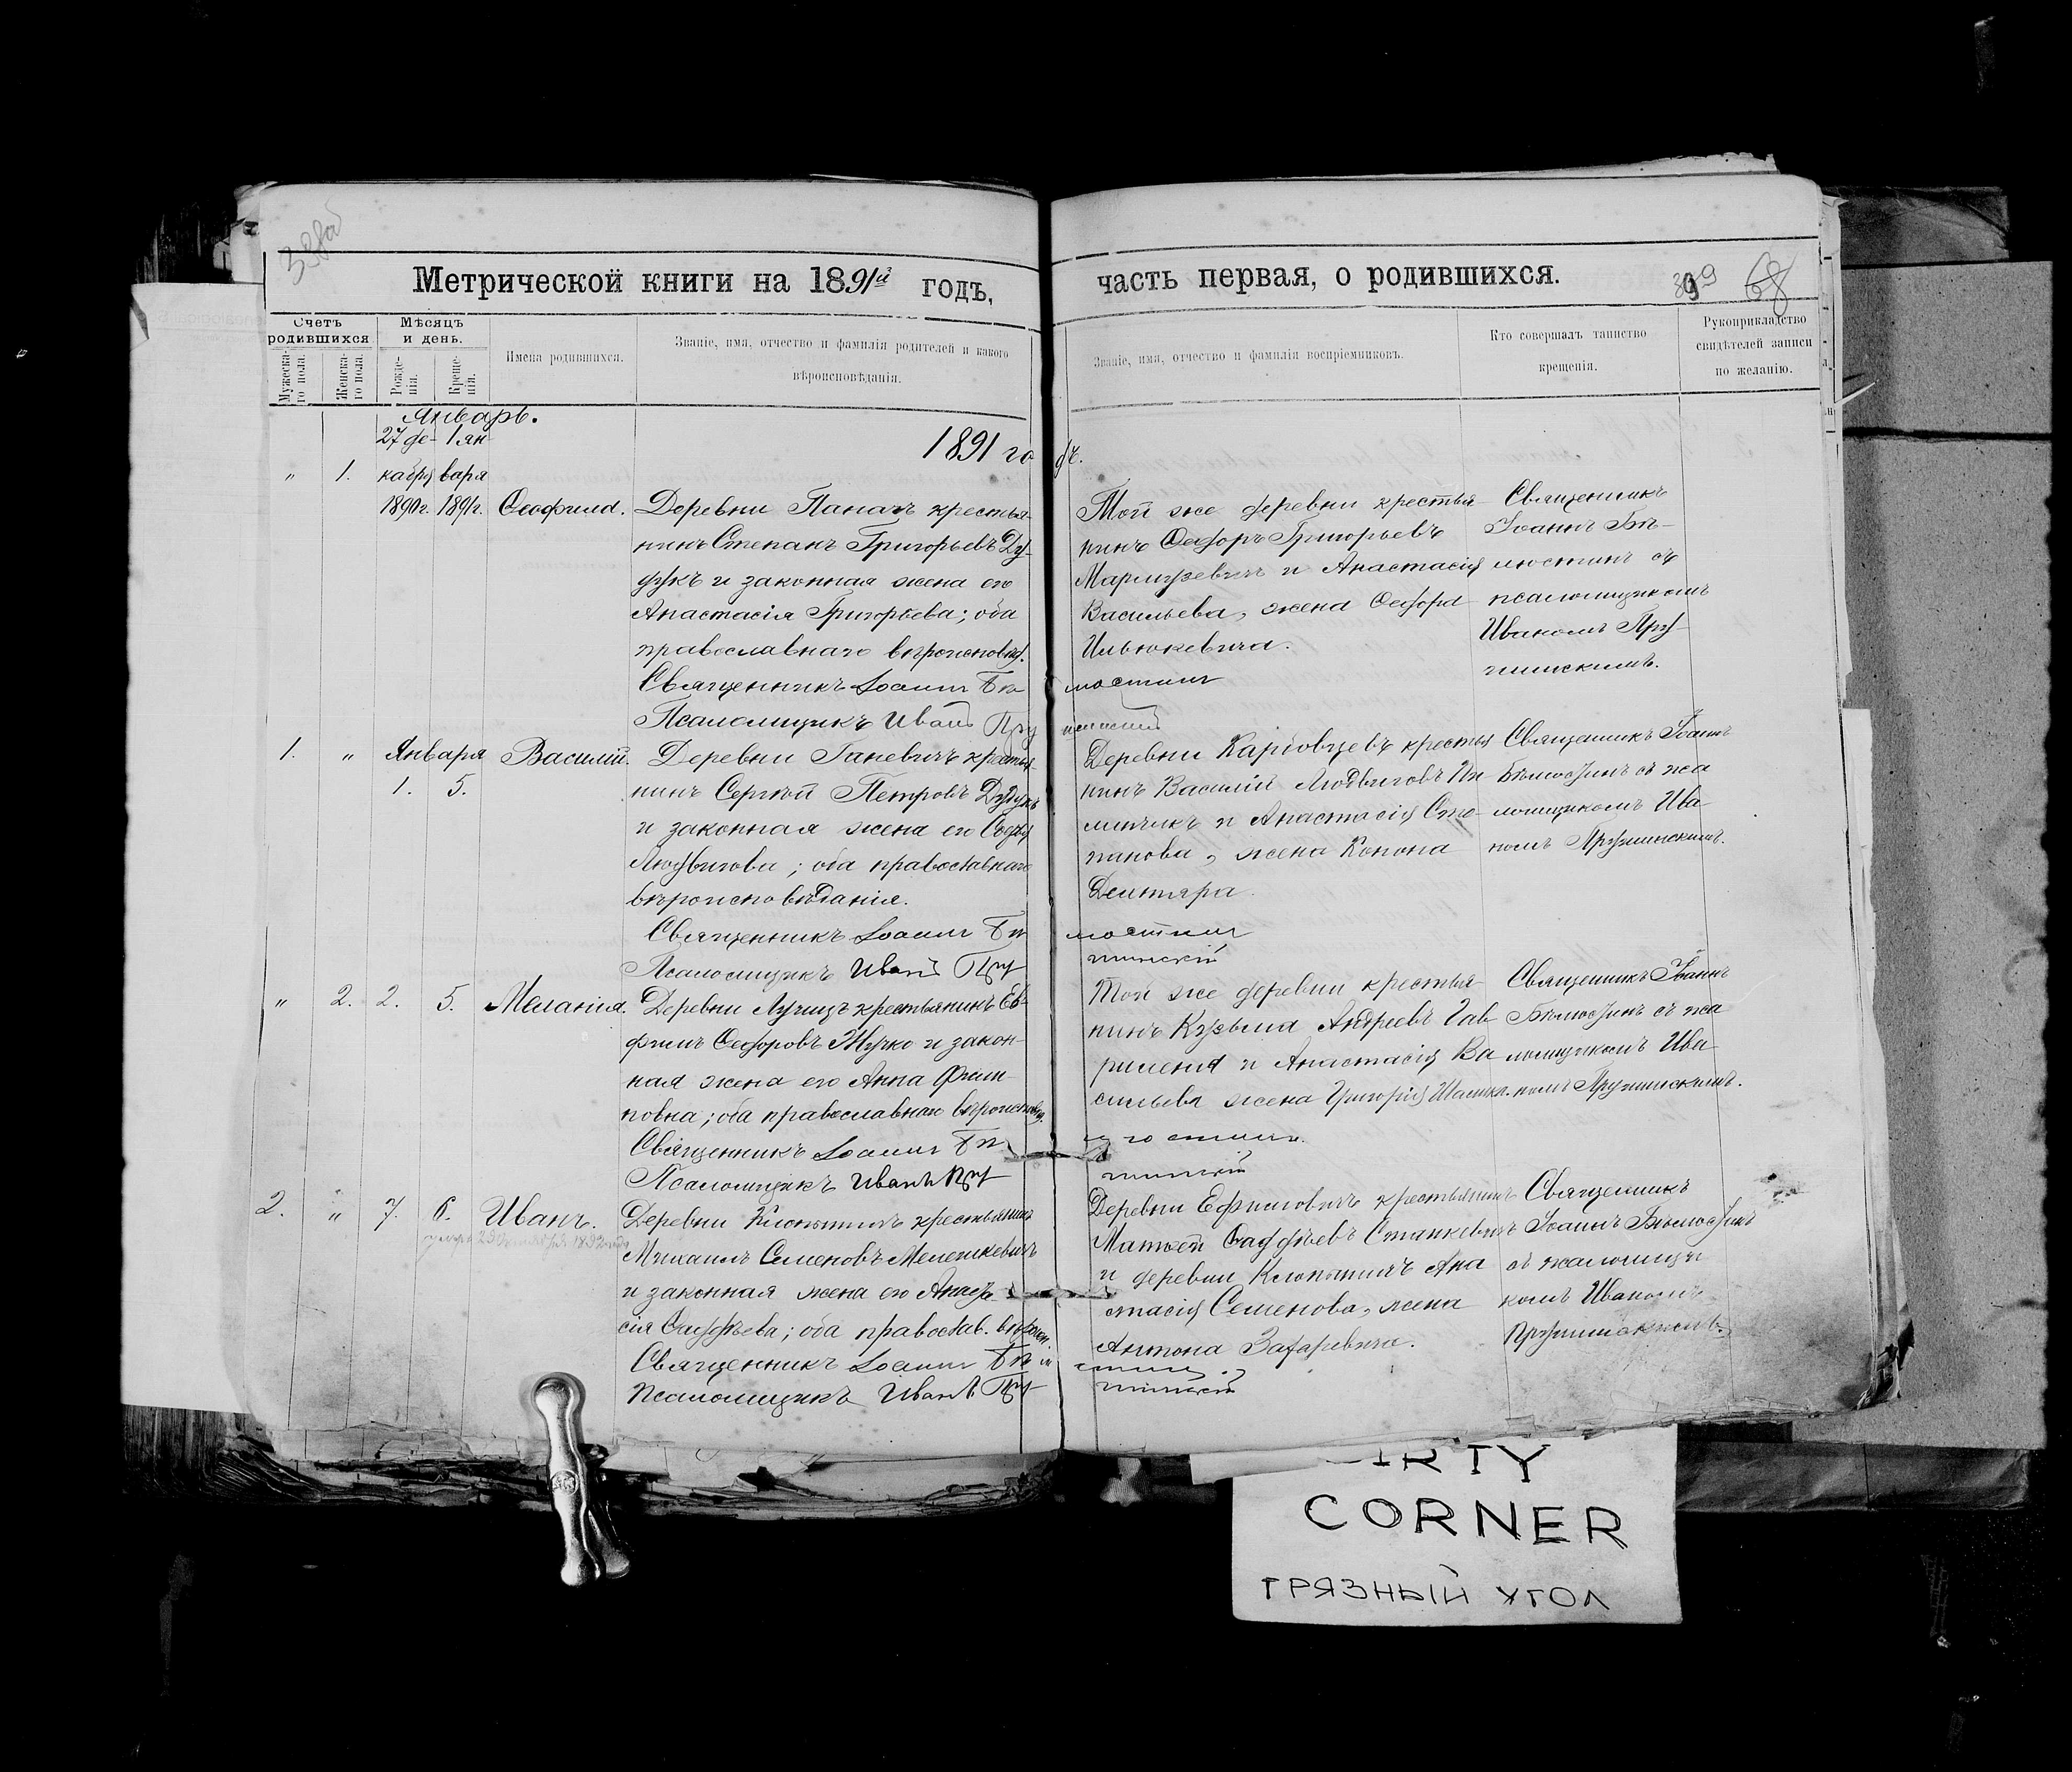 398об
Метрической книги на 1891й годъ,
часть первая, о родившихся.
399 68
Счетъ родившихся
Мужеска-
го пола.
Женска-
го пола.
Мѣсяцъ
и день.
Рожде-
нія.
Креще-
нія.
Имена родившихся.
Званіе, имя, отчество и фамилія родителей и какого
вѣроисповѣданія.
Званіе, имя, отчество и фамилія воспріемниковъ.
Кто совершалъ таинство
крещенія.
Рукоприкладство
свидѣтелей записи
по желанію.
Январь.
1891 годъ.
„ 1.
27 де- 1 ян
кабря варя
1890г. 1891г.
Деревни Паначъ крестья-
нинъ Степанъ Григорьевъ Ду-
дукъ и законная жена его
Анастасія Григорьева; оба
православнаго вѣроисповѣд.
Священникъ Іоаннъ Бѣлюстинъ
Псаломщикъ Иванъ
Той же деревни крестья-
нинъ Ѳеодоръ Григорьевъ
и Анастасія
Васильева, жена Ѳеодора
Ильюкевича.
Священникъ
Іоаннъ Бѣ-
люстинъ съ
псаломщикомъ
Иваномъ
1. „ Января
1. 5.
Василій.
Деревни Ганевичъ крестья-
нинъ Сергѣй Петровъ Дудукъ
и законная жена его Софія
Людвигова; оба православнаго
вѣроисповѣданія.
Священникъ Іоаннъ Бѣлюстинъ
Псаломщикъ Иванъ
Деревни крестья
нинъ Василій Людвиговъ
и Анастасія Сте-
панова, жена Конона
Священникъ Іоаннъ
Бѣлюстинъ съ пса
ломщикомъ Ива-
номъ
„ 2. 2. 5.
Меланія.
Деревни Лучицъ крестьянинъ Ев-
фимъ Ѳеодоровъ Жучко и закон-
ная жена его Анна Филип-
повна; оба православнаго вѣроисповѣд.
Священникъ Іоаннъ Бѣлюстинъ
Псаломщикъ Иванъ
Той же деревни крестья-
нинъ Кузьма Андреевъ Гав
и Анастасія Ва
сильева жена Григорія
Священникъ Іоаннъ
Бѣлюстинъ съ пса
ломщикомъ Ива-
номъ
2. „ 7. 6.
Иванъ.
Деревни крестьянинъ
Михаилъ Семеновъ Мелешкевичъ
и законная жена его Анаста-
сія Ѳаддѣева; оба православ. вѣроисп.
Священникъ Іоаннъ Бѣлюстинъ
Псаломщикъ Иванъ
Деревни Ефимовичъ крестьянинъ
Матвей Ѳаддѣевъ Станкевичъ
и деревни Ана
стасія Семенова, жена
Антона Захаревича.
Священникъ
Іоаннъ Бѣлюстинъ
съ псаломщи
комъ Иваномъ
RTY
CORNER
ГРЯЗНЫЙ УГОЛ